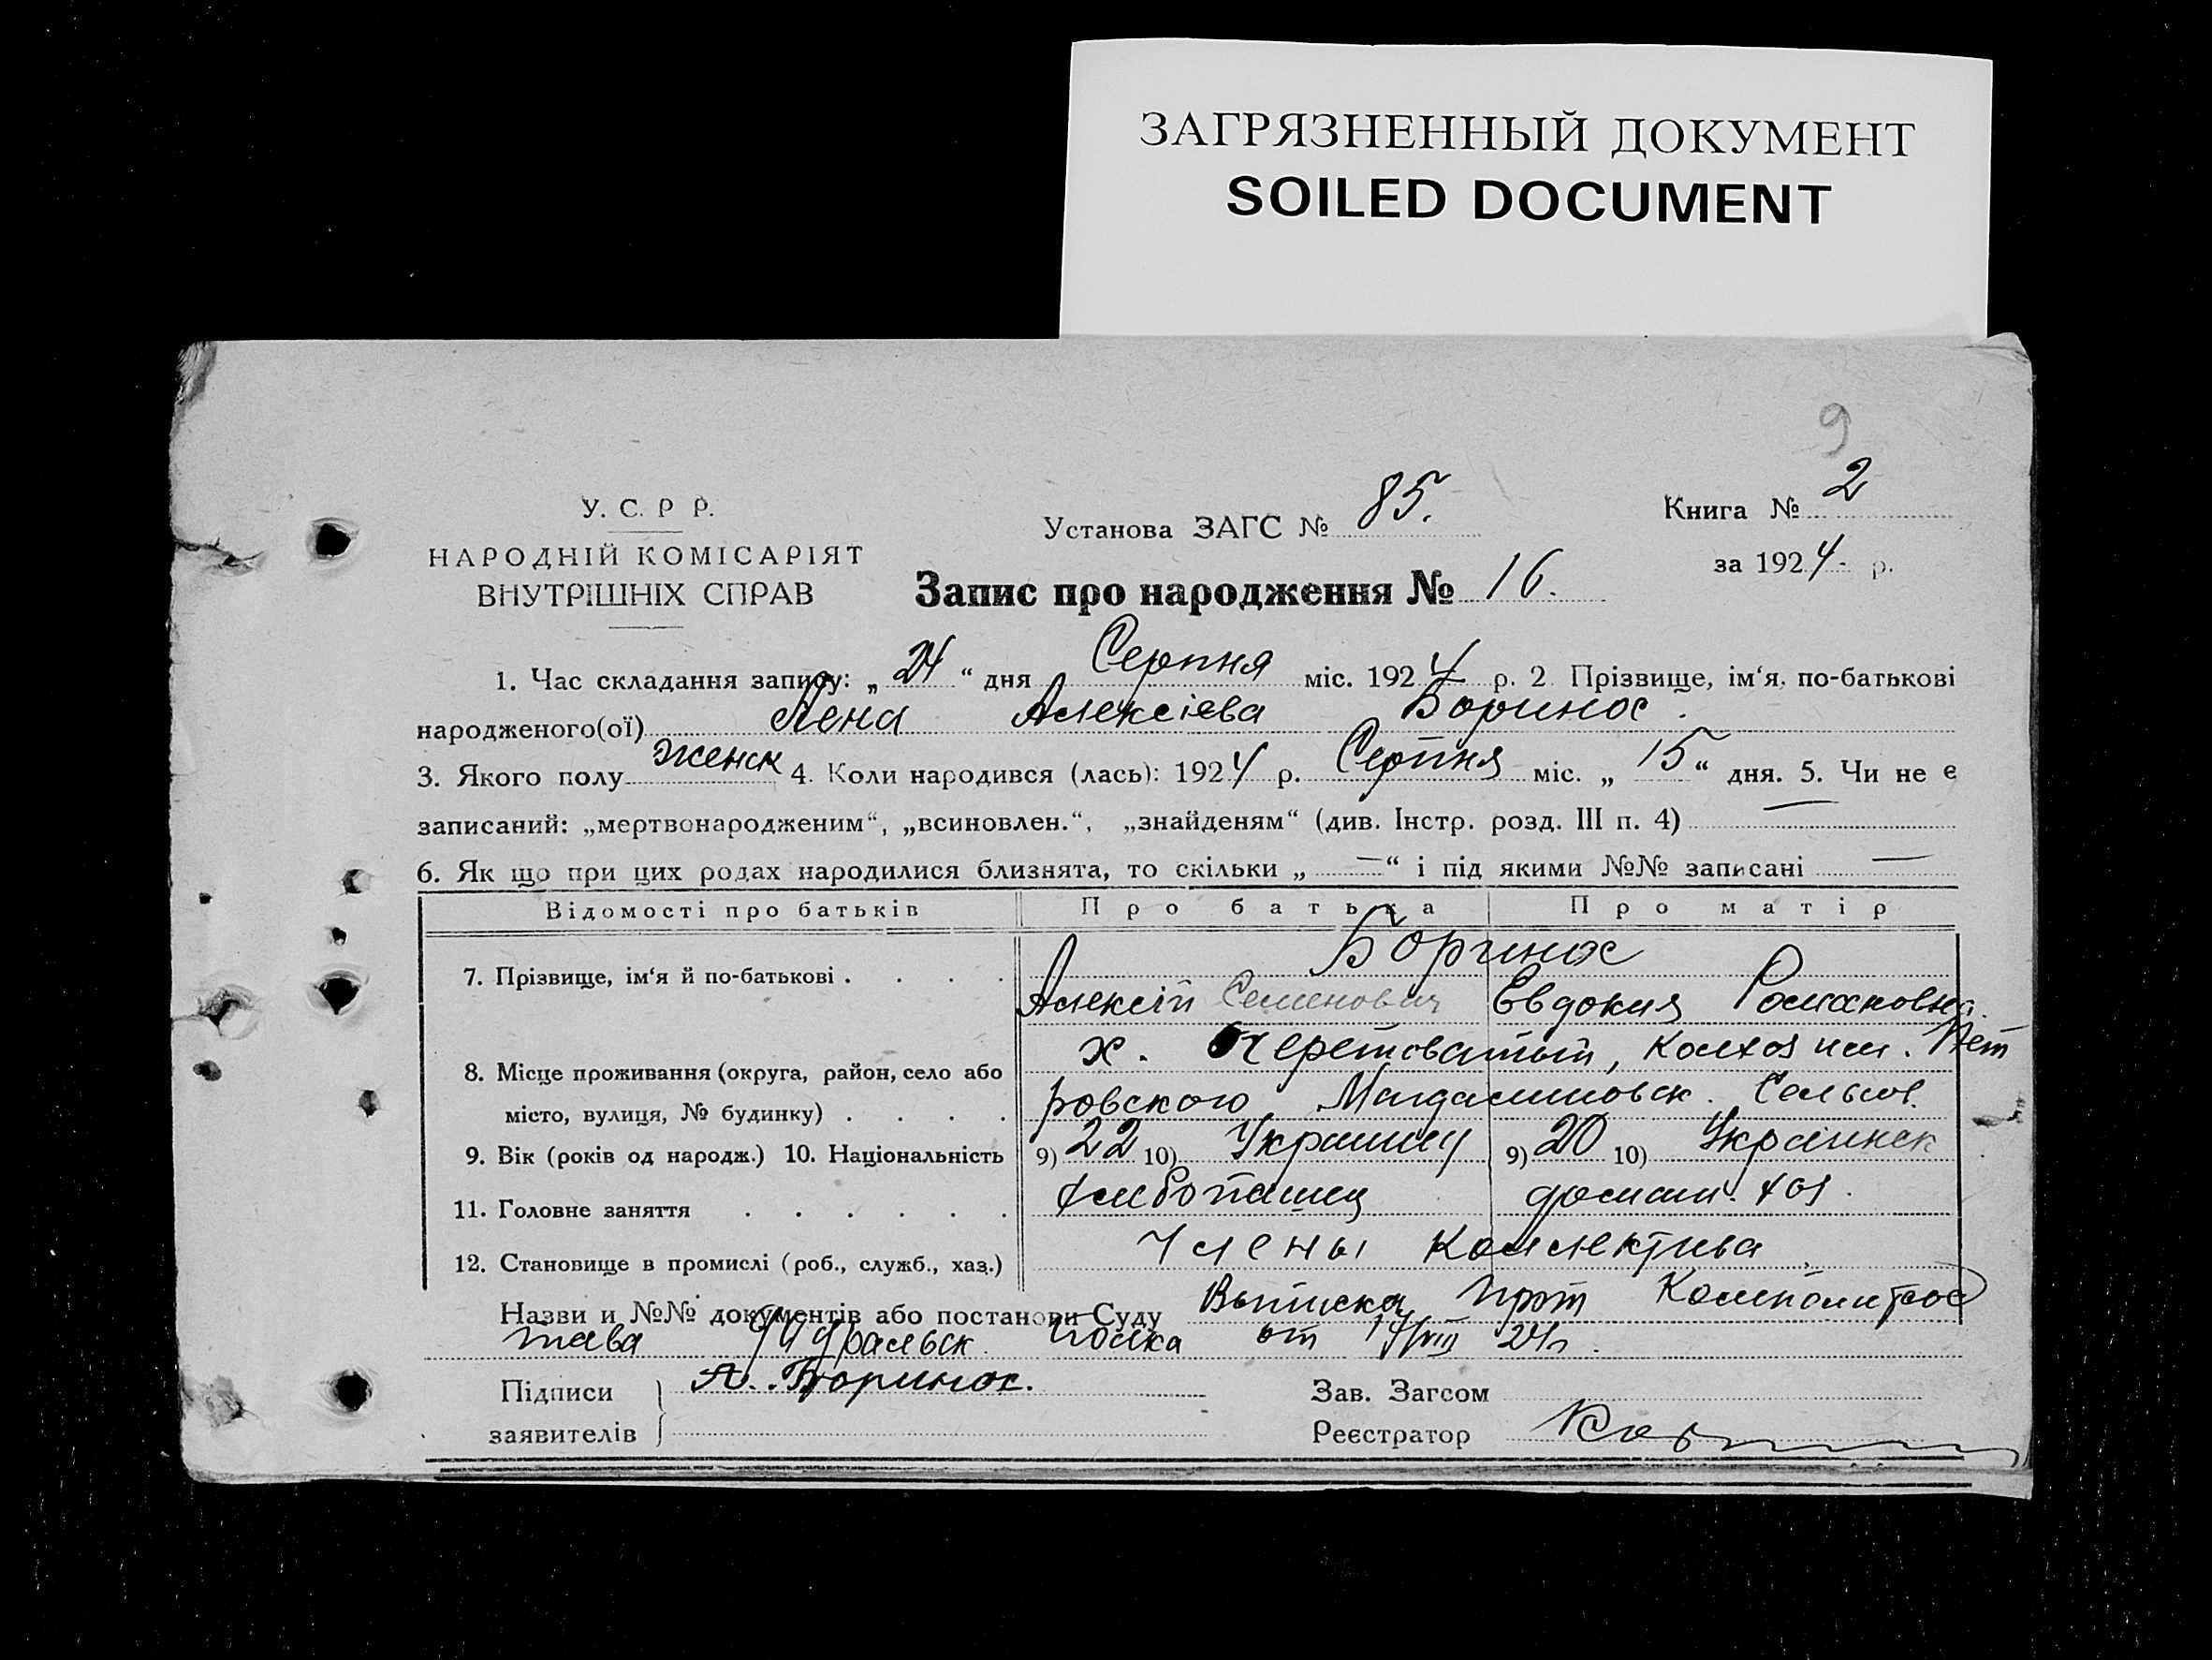 ЗАГРЯЗНЕННЫЙ ДОКУМЕНТ
SOILED DOCUMENT
9
У. С. Р Р.
Установа ЗАГС № 85.
Книга № 2
НАРОДНІЙ КОМІСАРІЯТ
за 1924 р.
ВНУТРІШНІХ СПРАВ
Запис про народження № 16.
1. Час складання запису: „ 24 “ дня Серпня міс. 1924 р. 2 Прізвище, ім‘я, по-батькові
народженого(ої) Лена Алексіева Боринос.
3. Якого полу женск 4. Коли народився (лась): 1924 р. Серпня міс. „ 15 “ дня. 5. Чи не є
записаний: „мертвонародженим“, „всиновлен.“, „знайденям“ (див. Інстр. розд. III п. 4) —
6. Як що при цих родах народилися близнята, то скільки „ — “ і під якими №№ записані —
Відомості про батьків Про батька Про матір
Боринос
7. Прізвище, ім‘я й по-батькові . . . .
Алексій Семенович Евдокия Романовна
х. Очеретоватый, колхоз им. Пет
8. Місце проживання (округа, район, село або
ровского Магдалиновск. Сельсов.
місто, вулиця, № будинку) . . . .
9. Вік (років од народж.) 10. Національність 9) 22 10) Украинец 9) 20 10) Украинск
11. Головне заняття . . . . . . Хлебопашец домашн. хоз.
12. Становище в промислі (роб., служб., хаз.) Члены Коллектива
Назви и №№ документів або постанови Суду Выписка, прот
от 17/VIII 24г.
Підписи А. Боринос. Зав. Загсом
заявителів Реєстратор